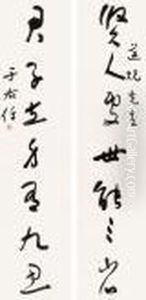 賢人處世能三省
先生
君子立身有九思
于右任